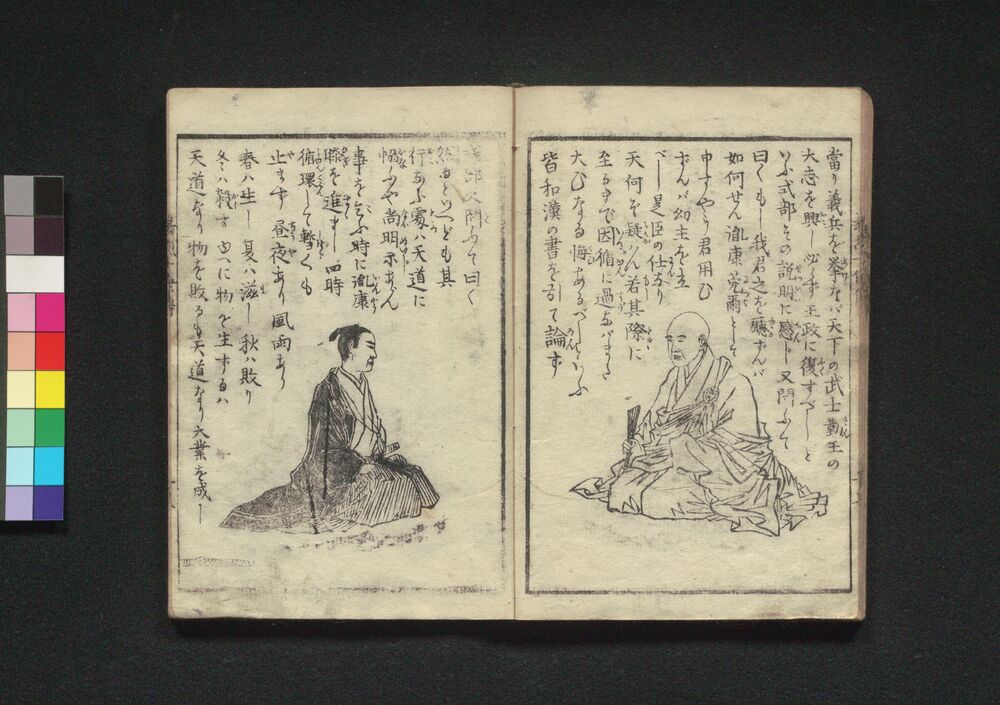 當り義兵を挙なバ天下の武士勤王の
大志を興し必らず王政に復すべしと
いふ式部その説明に感じ又問ふて
曰くもし我君之を聴ずんバ
如何せん胤康莞爾として
申すやう君用ひ
ずんバ幼主を立
べし是臣の仕なり
天何ぞ疑ハん若其際に
至るまで因循に過なバまた
大ひなる悔あるべしといふ
皆和漢の書を引て論ず
式部又問ふて曰く
然るといへども其
行なふ處ハ天道に
恊ふや尚明示あらん
事をといふ時に胤康
膝を進まし四時
循環して輟くも
止まず昼夜あり風雨あり
春ハ生し夏ハ滋し秋ハ敗り
冬ハ殺す由に物を生ずるハ
天道なり物を敗るも天道なり大業を成し